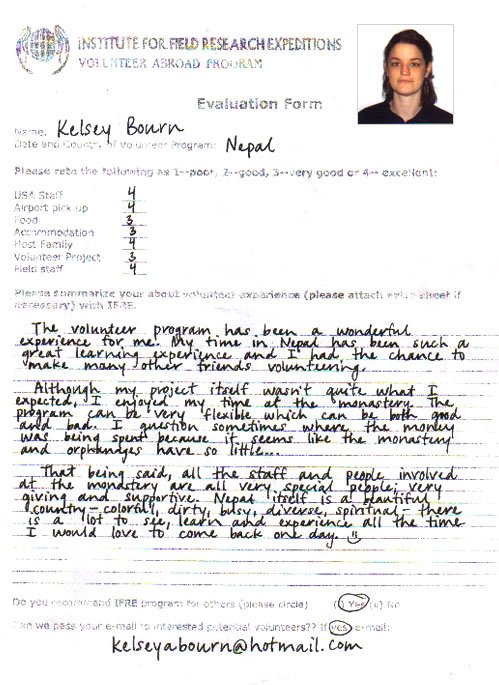 INSTITUTE FOR FIELD RESEARCH EXPEDITIONS
VOLUNTEER ABROAD PROGRAM
Evaluation Form
Name: Kelsey Bourn
Date and Country of Volunteer Program: Nepal
Please rate the following as 1--poor, 2--good, 3--very good or 4-- excellent:
USA Staff 4
Airport pick up 4
Food 3
Accommodation 3
Host Family 4
Volunteer Project 3
Field staff 4
Please summarize your about volunteer experience (please attach extra sheet if
necessary) with IFRE.
The volunteer program has been a wonderful
experience for me. My time in Nepal has been such a
great learning experience and I had the chance to
make many other friends volunteering.
Although my project itself wasn't quite what I
expected, I enjoyed my time at the monastery. The
program can be very flexible which can be both good
and bad. I question sometimes where the money
was being spent because it seems like the monastery
and orphanages have so little...
That being said, all the staff and people involved
at the monastery are all very special people; very
giving and supportive. Nepal itself is a beautiful
country - colorful, dirty, busy, diverse, spiritual - there
is a lot to see, learn and experience all the time
I would love to come back one day.
Do you recommend IFRE program for others (please circle) () Yes () No
Can we pass your e-mail to interested potential volunteers?? If yes e-mail:
kelseyabourn@hotmail.com